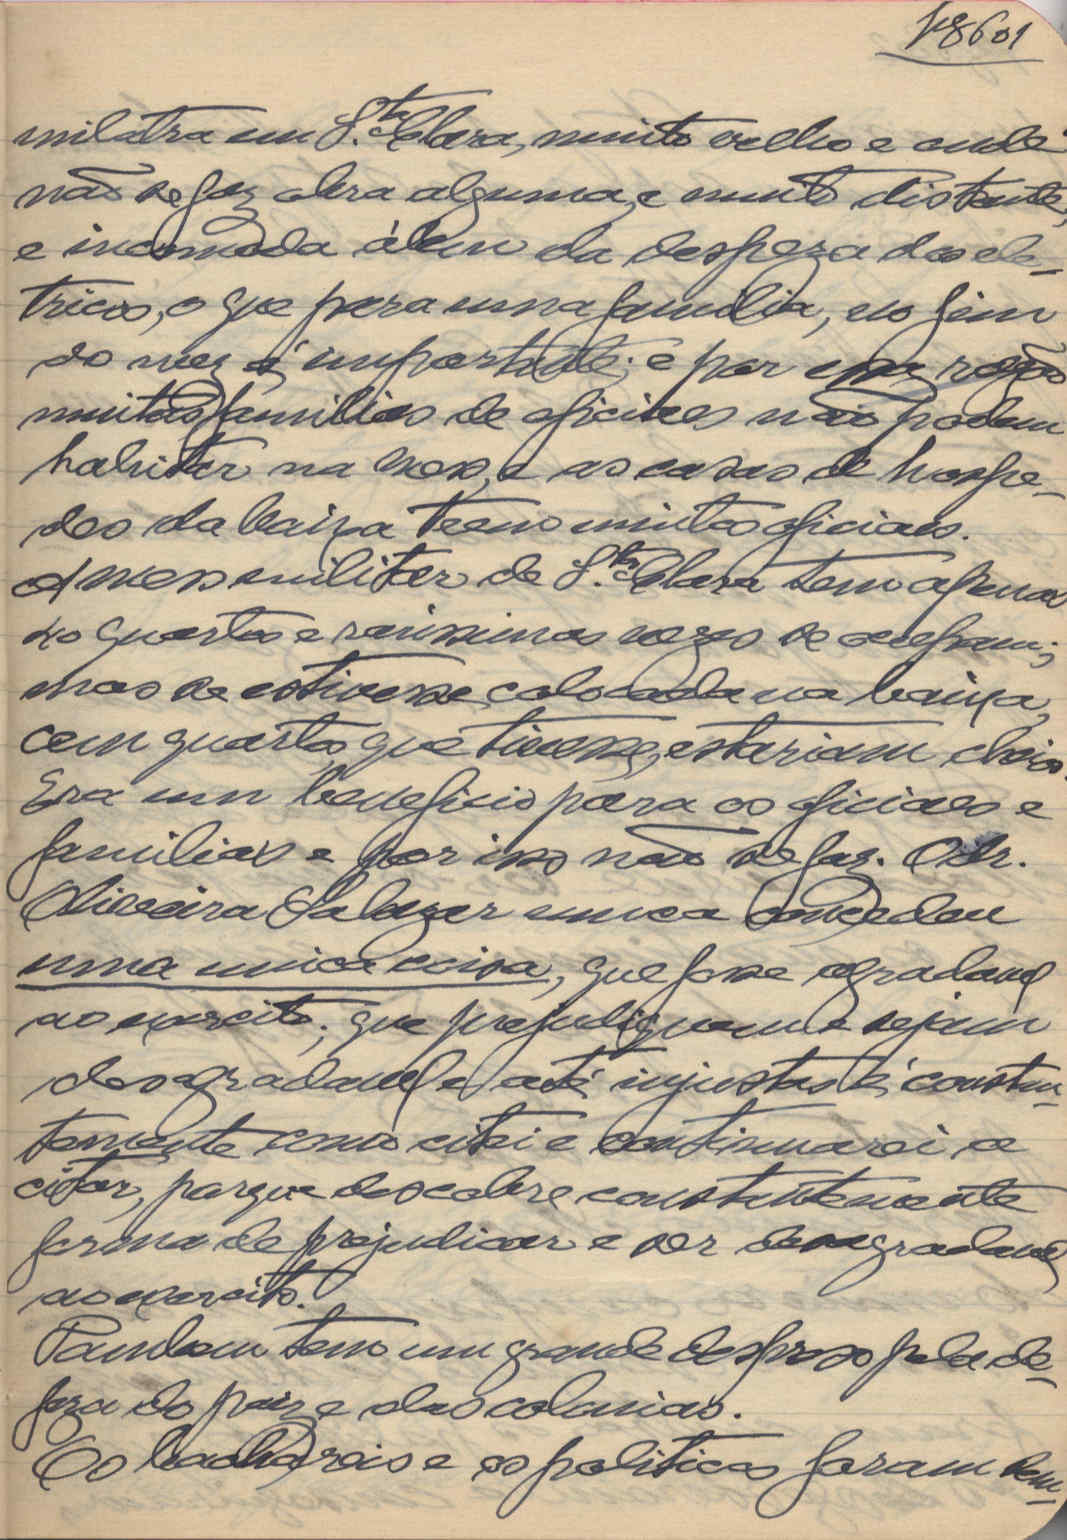 18601
militar em S.ta Clara, muito velho e onde
não se faz obra alguma, e muito distante,
e incomoda álem da despeza dos ele-
tricos, o que para uma familia, no fim
do mez é importante; e por essa razão
muitas familias de oficiaes não podem
habitar na mess, e as casas de hospe-
des da baixa teem muitos oficiaes.
A mess militar de S.ta Clara tem apenas
quartos e rarissimas vezes se ocupam;
mas se estivesse colocada na baixa,
cem quartos que tivesse, estariam cheios.
Era um beneficio para os oficiaes e
familias e por isso não se faz. O dr.
Oliveira Salazar nunca concedeu
uma unica coisa, que fosse agradavel
ao exercito; que prejudiquem e sejam
desagradavel e até injustas é constan-
temente como citei e continuarei a
citar, porque descobre constantemente
forma de prejudicar e ser desagradavel
ao exercito.
Tambem tem um grande despreso pela de-
feza do paiz e das colonias.
Os bachareis e os politicos foram sem-